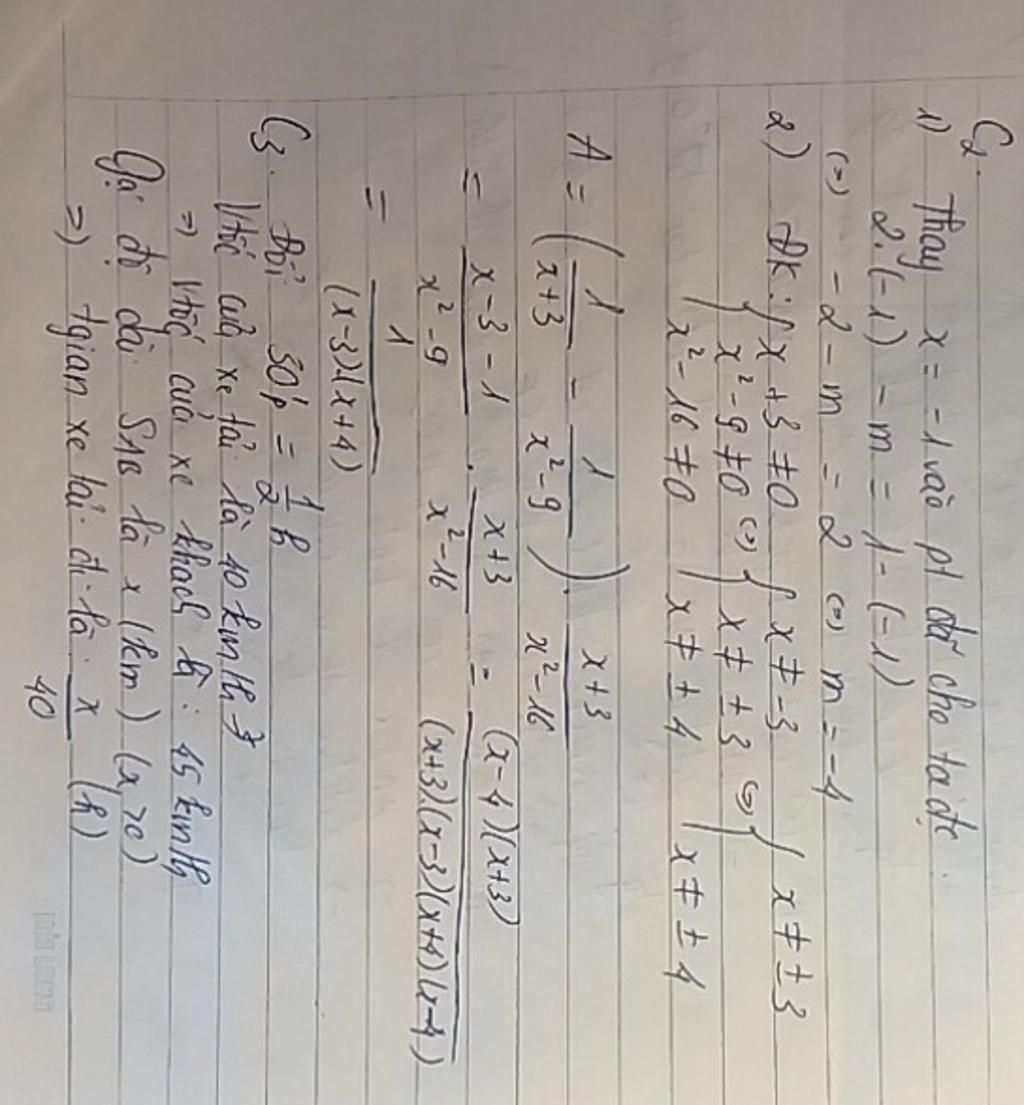 C2.
1) Thay x = -1 vào pt đã cho ta đc
2.(-1) - m = 1 - (-1)
(=) -2 - m = 2 (=) m = -4
2) ĐK: { x + 3 ≠ 0 { x ≠ -3 { x ≠ ± 3
{ x² - 9 ≠ 0 (=) { x ≠ ± 3 (=) {
{ x² - 16 ≠ 0 { x ≠ ± 4 { x ≠ ± 4
A = ( 1/(x+3) - 1/(x² - 9) ) . (x+3)/(x² - 16)
= (x - 3 - 1)/(x² - 9) . (x+3)/(x² - 16) = (x-4)(x+3)/((x+3)(x-3)(x+4)(x-4))
= 1/((x-3)(x+4))
C3. Đổi 30'p = 1/2 h
Vtốc của xe tải là 40 km/h
=) Vtốc của xe khach là: 45 km/h
Gọi độ dài SAB là x (km) (x>0)
=) tgian xe tải đi là: x/40 (h)